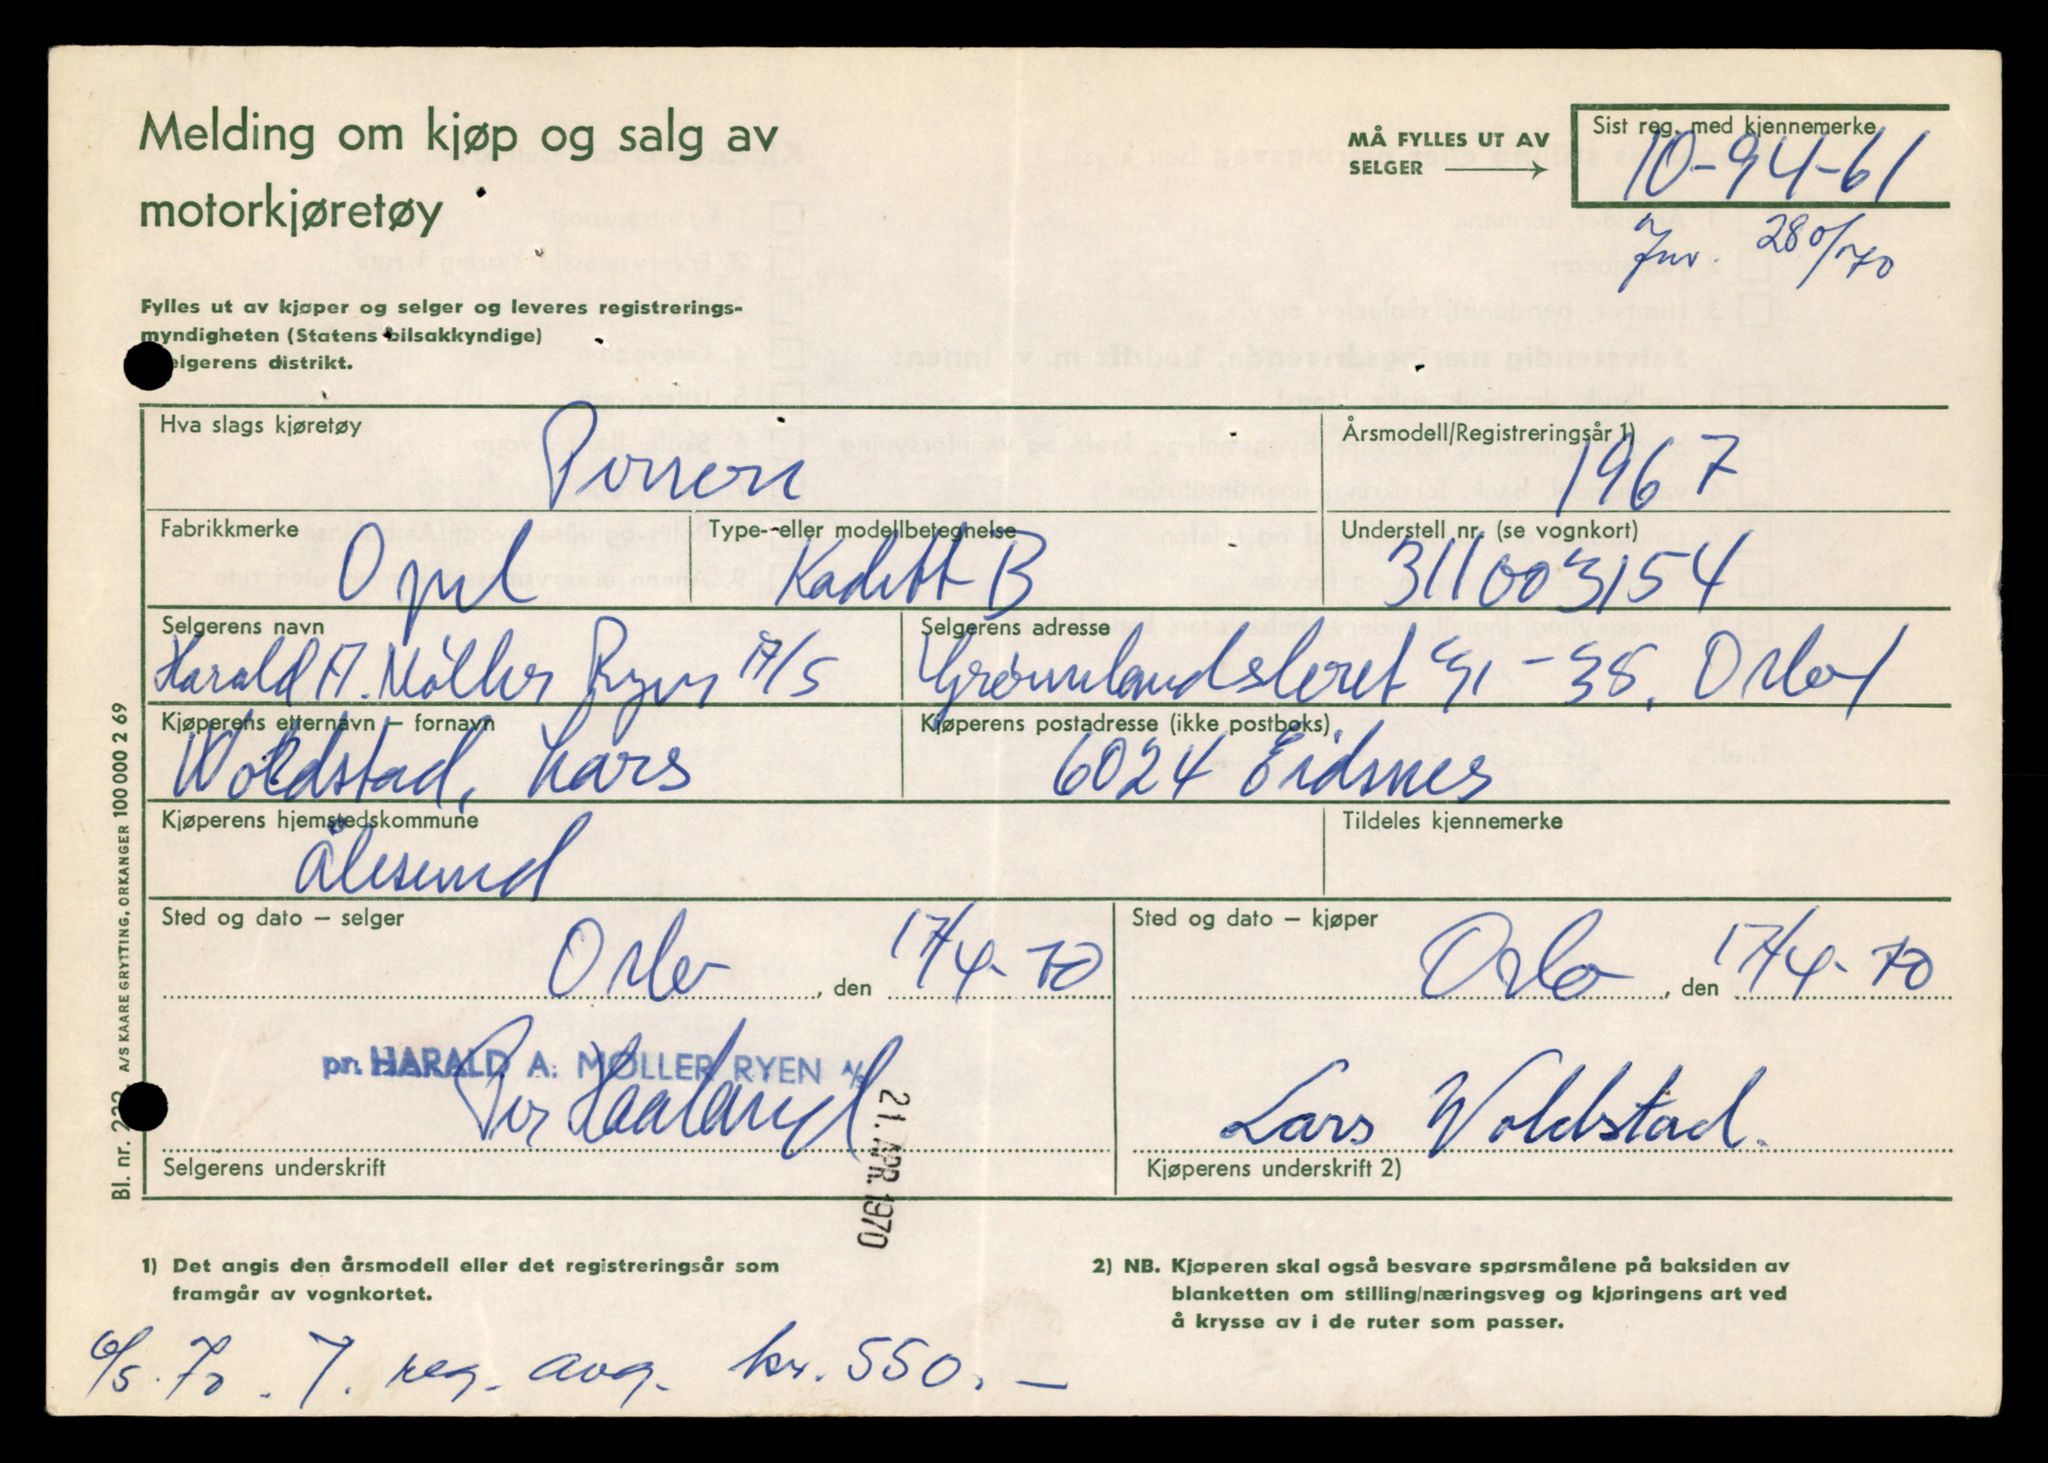 Melding om kjøp og salg av
motorkjøretøy
MÅ FYLLES UT AV
SELGER
Sist reg. med kjennemerke
10-94-61
28/ 70
Fylles ut av kjøper og selger og leveres registrerings-
myndigheten (Statens bilsakkyndige)
elgerens distrikt.
Hva slags kjøretøy
Årsmodell/Registreringsår 1)
1967
Fabrikkmerke
Type- eller modellbetegnelse
Understell nr. (se vognkort)
Opel
Kadett B
311003154
Selgerens navn
Selgerens adresse
Harald A. Møller Ryen A/S
Grønnlandsleret Oslo 1
Kjøperens etternavn – fornavn
Kjøperens postadresse (ikke postboks)
Woldstad, Lars
6024 Eidsnes
Kjøperens hjemstedskommune
Tildeles kjennemerke
Ålesund
Sted og dato – selger
Sted og dato – kjøper
Oslo, den 17/4-70
Oslo, den 17/4-70
pr. HARALD A. MØLLER RYEN A/S
Per Haaland
Lars Woldstad.
21. APR. 1970
Selgerens underskrift
Kjøperens underskrift 2)
Bl. nr. A/S KAARE GRYTTING, ORKANGER 100 000 2 69
1) Det angis den årsmodell eller det registreringsår som
framgår av vognkortet.
2) NB. Kjøperen skal også besvare spørsmålene på baksiden av
blanketten om stilling/næringsveg og kjøringens art ved
å krysse av i de ruter som passer.
6/5.70. 7. reg. avg. kr. 550.—